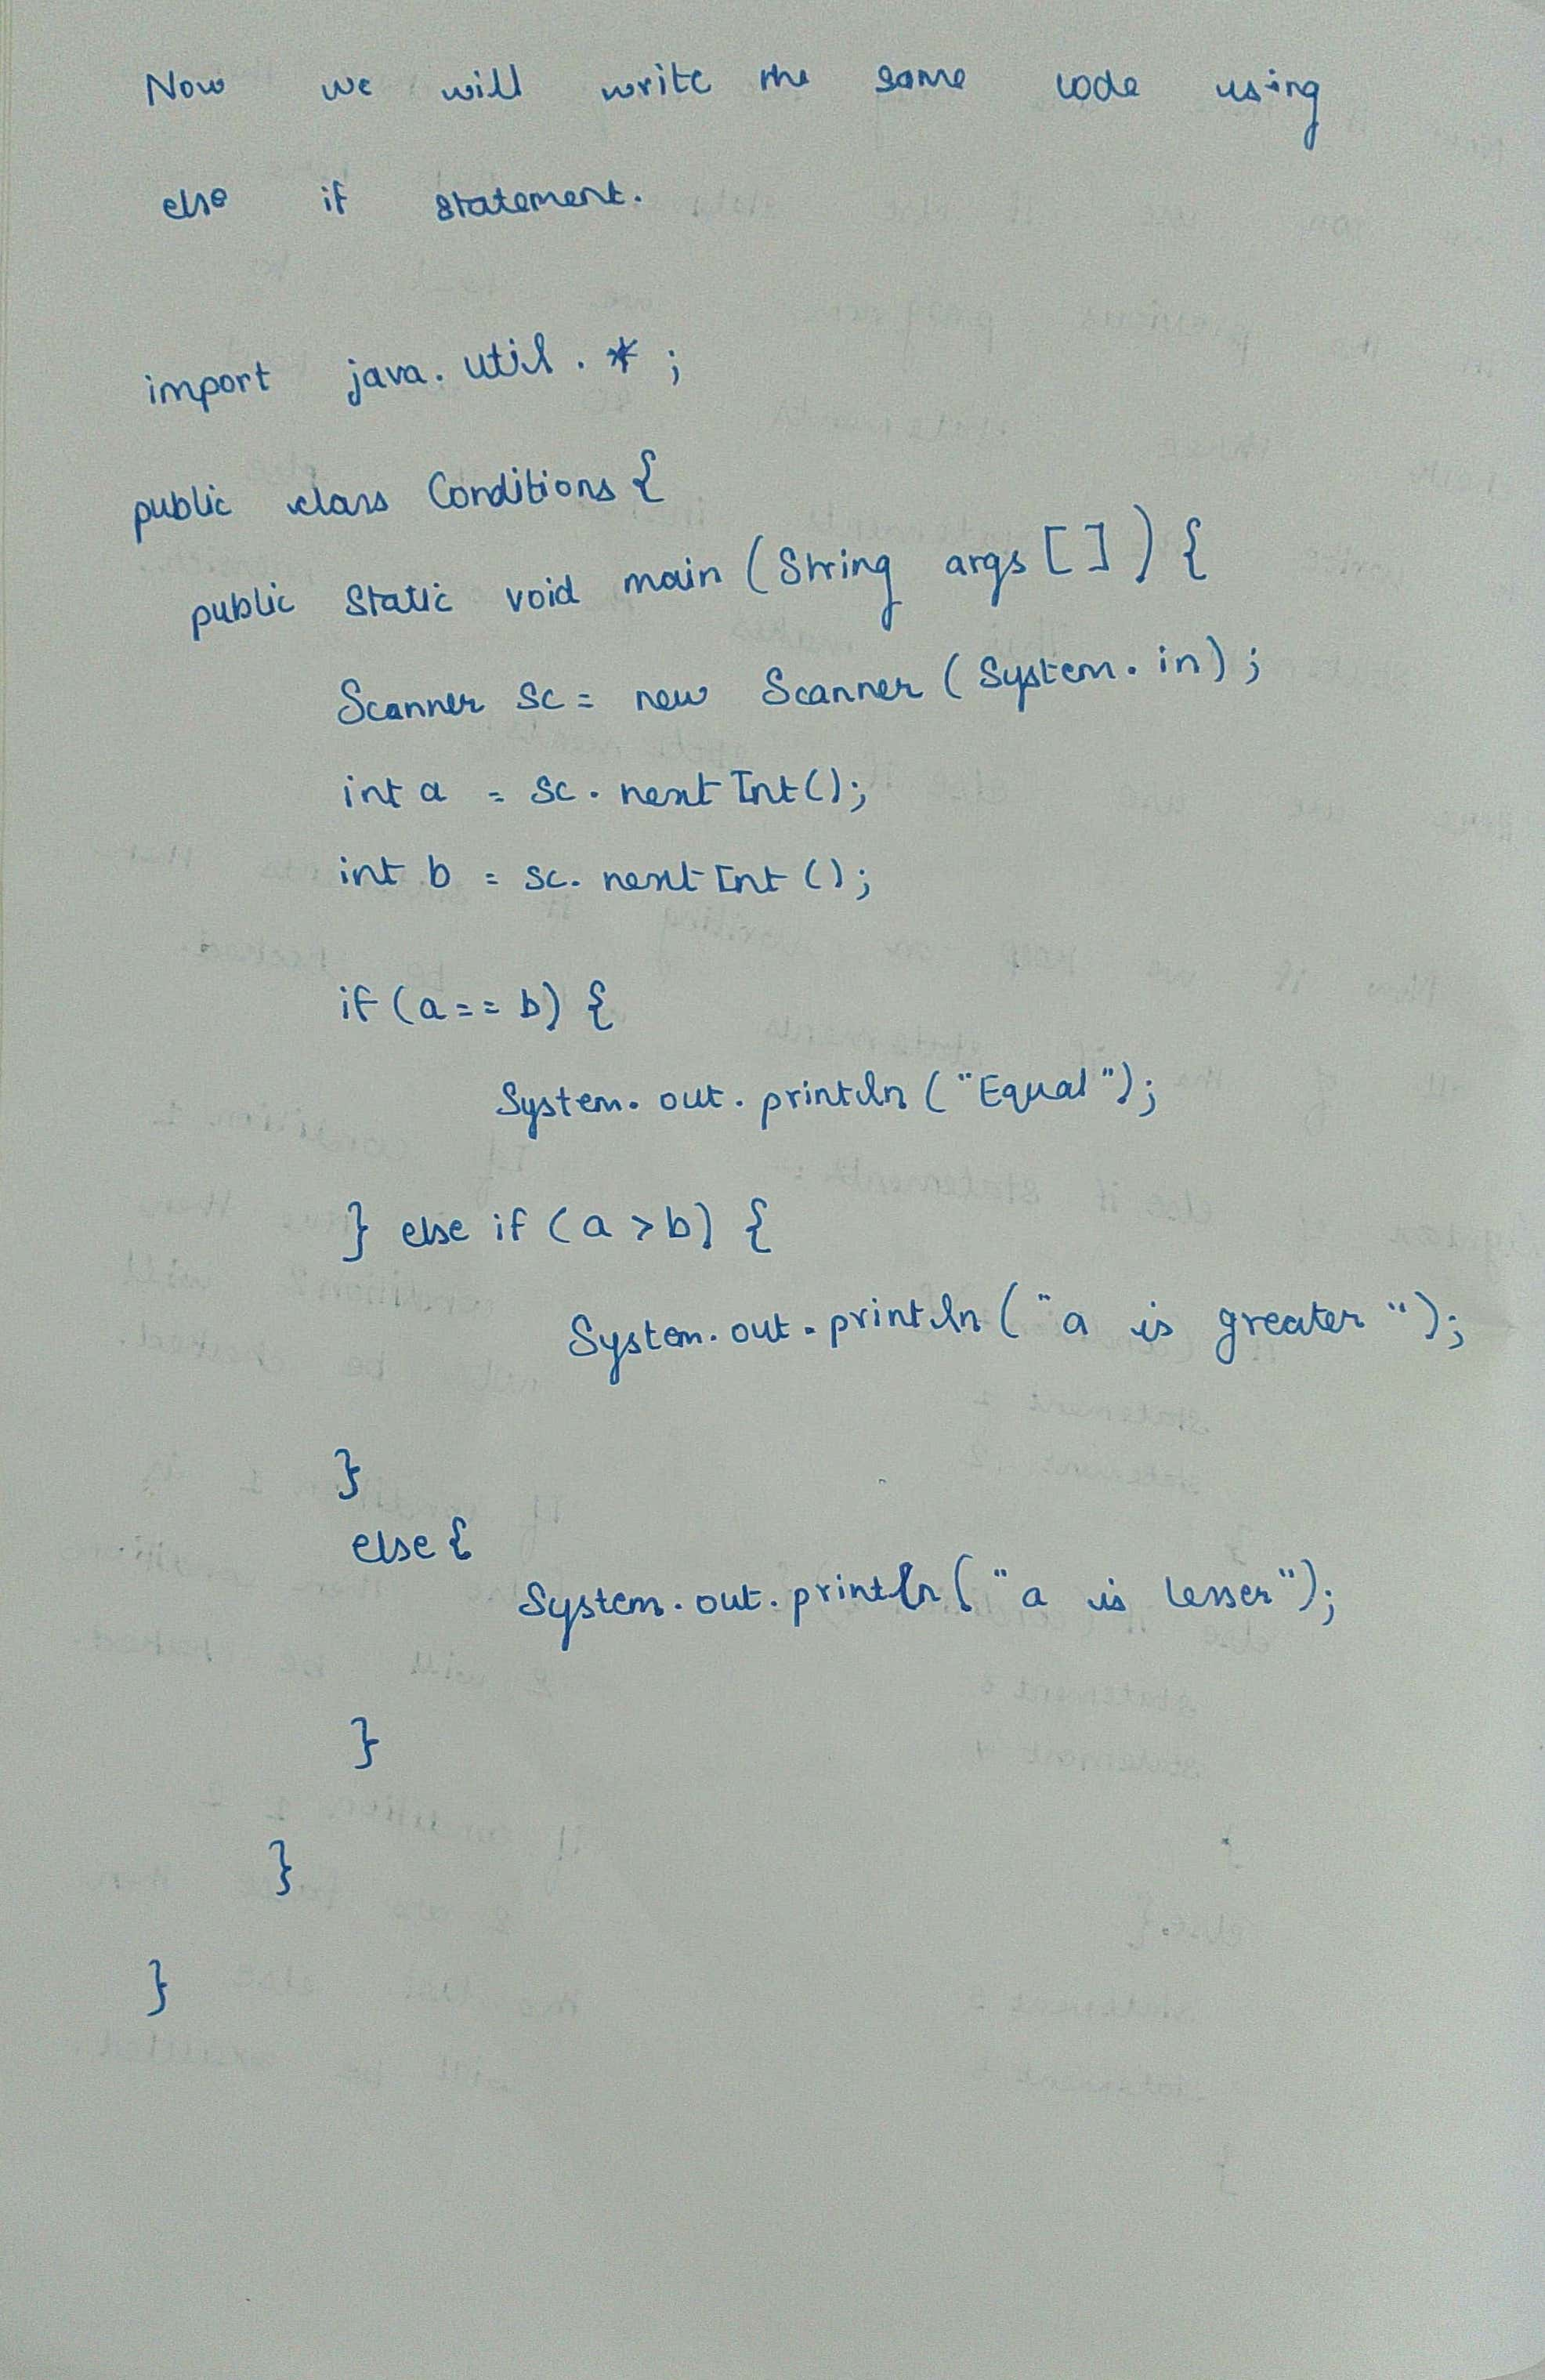 Now we will write the same code using
else if statement.
import java.util.*;
public class Conditions {
public static void main (String args []) {
Scanner sc = new Scanner (System.in);
int a = sc.nextInt();
int b = sc.nextInt();
if (a == b) {
System.out.println ("Equal");
} else if (a > b) {
System.out.println ("a is greater");
}
else {
System.out.println ("a is lesser");
}
}
}